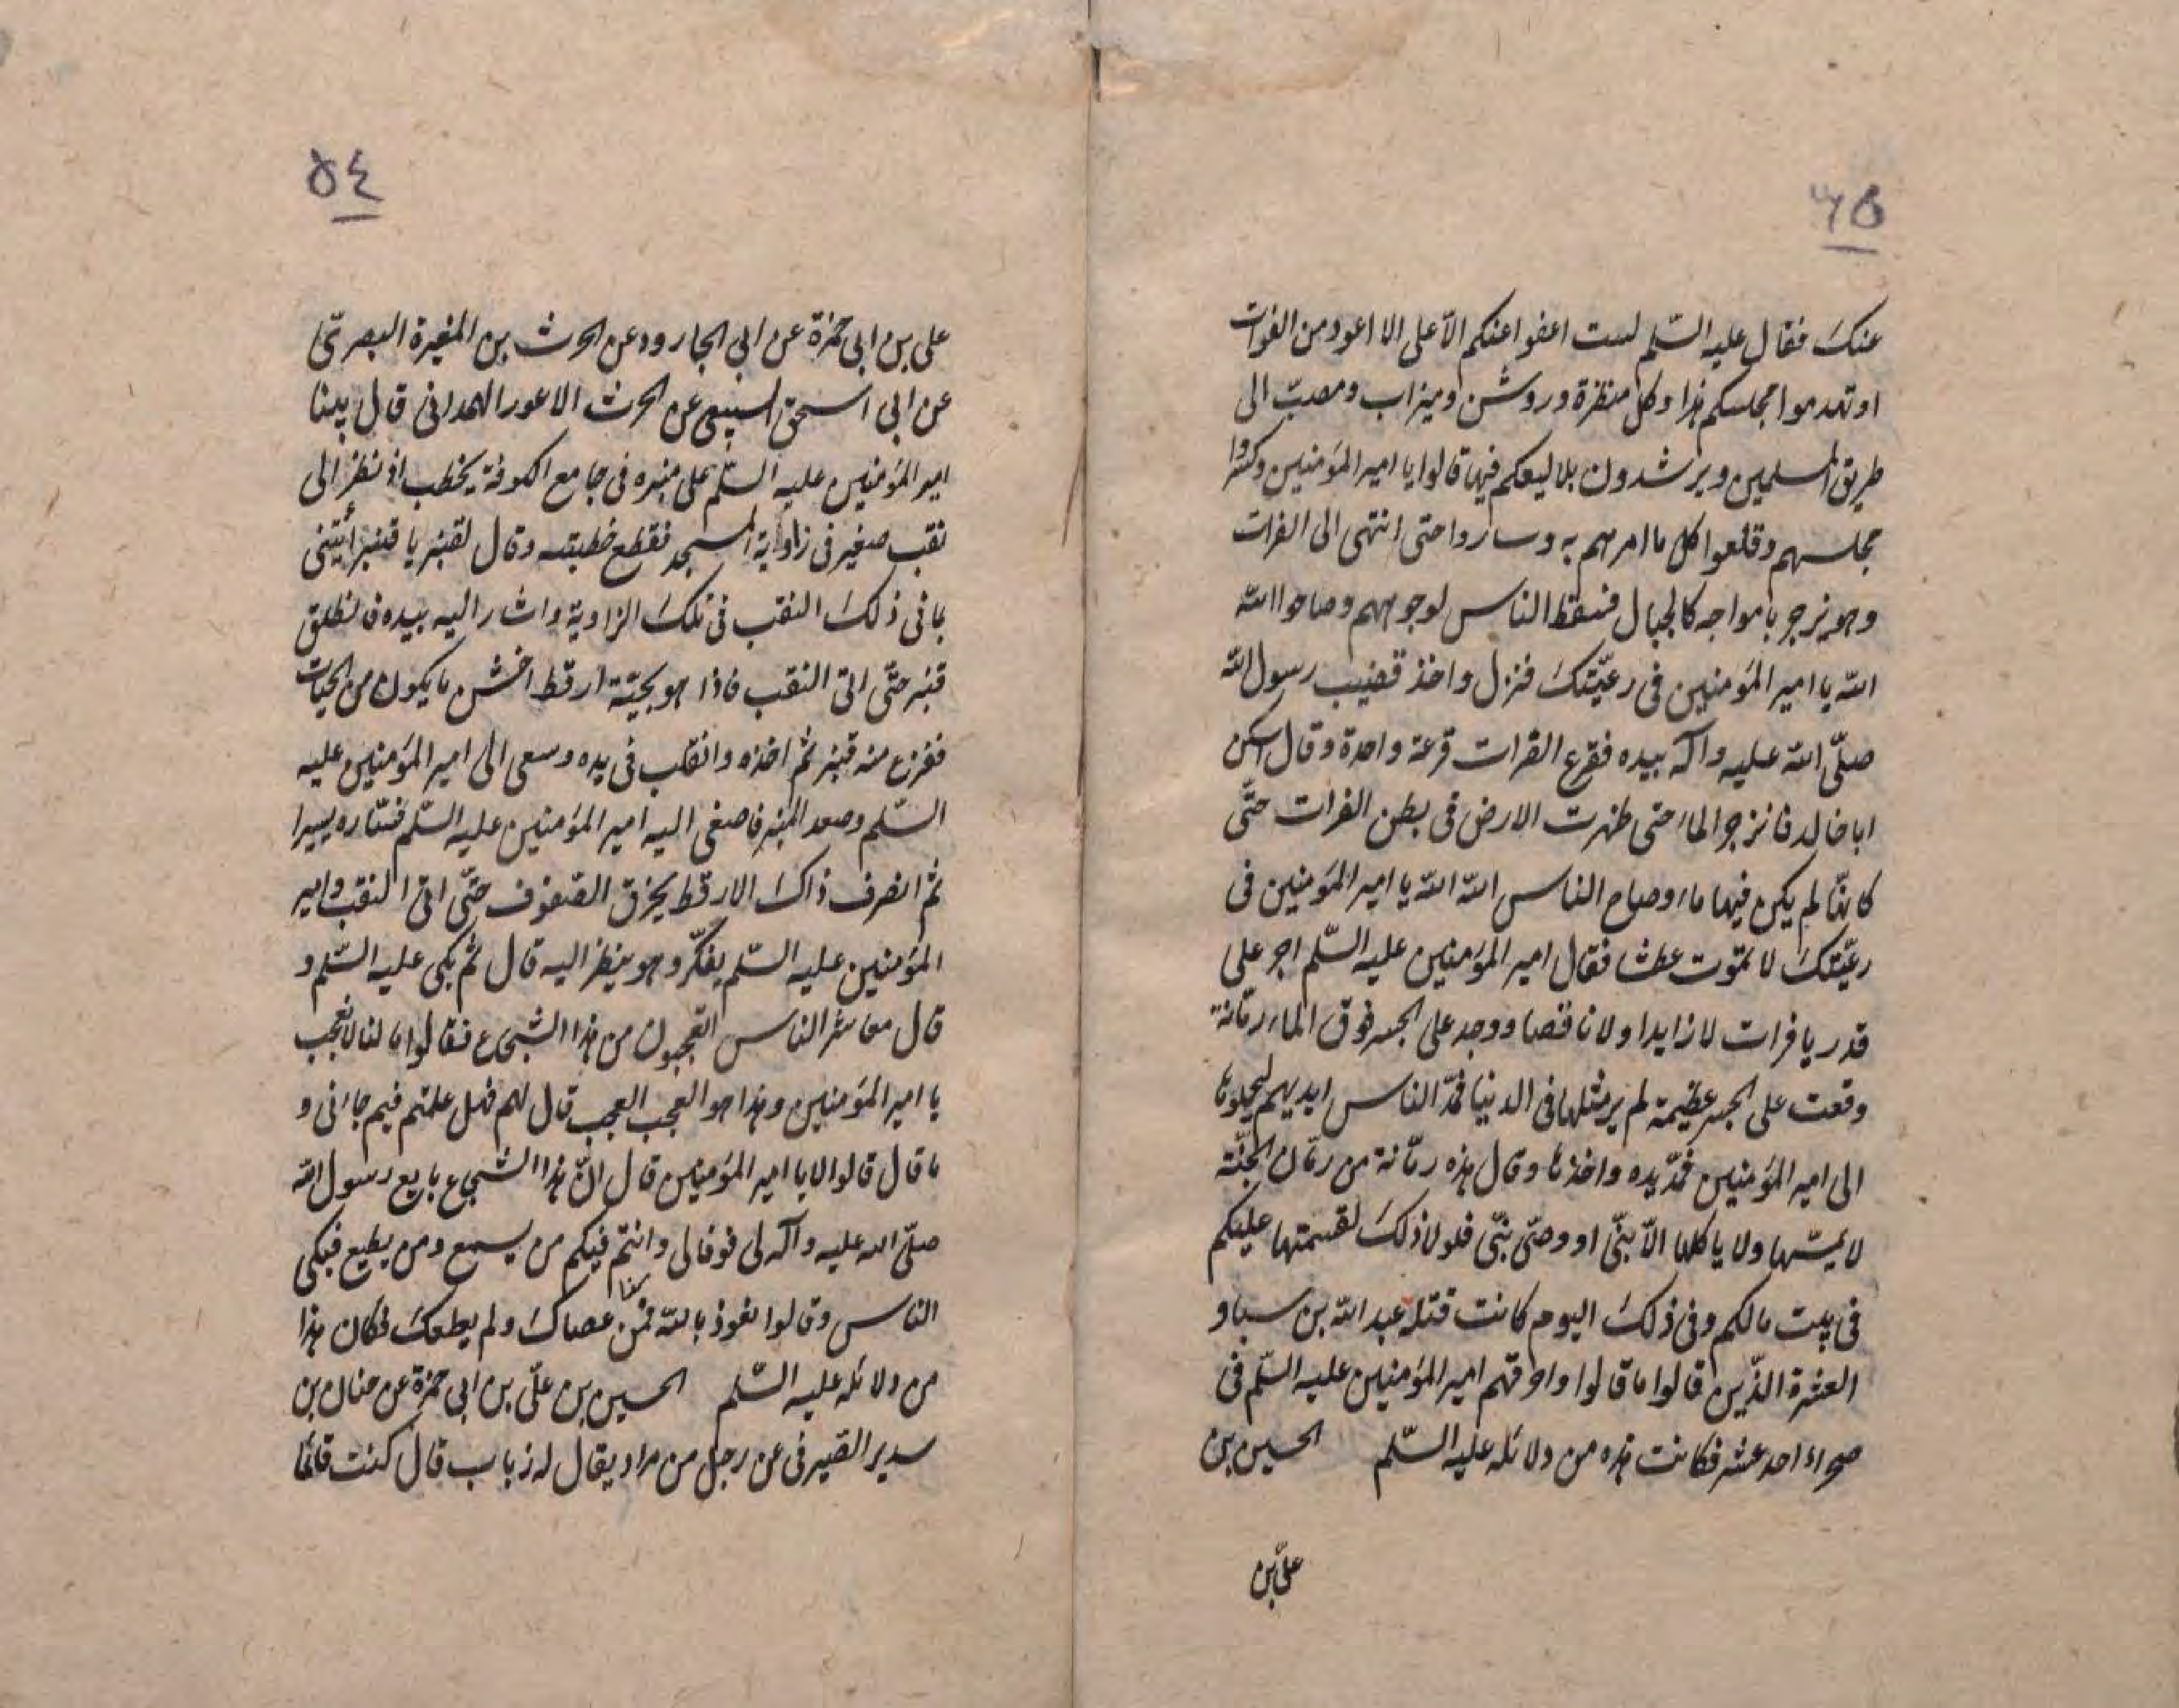 ٥٣
عنك فقال عليه السّلم لست اعفوا عنكم الّا على الا اعود من الفرات
او تهدموا مجلسكم هذا وكل منظرة وروشن وميزاب ومصبّ الى
طريق المسلمين ويرشدون بلاليعكم فيها قالوا يا امير المؤمنين وكسروا
مجلسهم وقلعوا كل ما امرهم به وساروا حتى انتهى الى الفرات
وهو يزجر بامواجه كالجبال فسقط الناس لوجوههم وصاحوا الله
الله يا امير المؤمنين فى رعيّتك فنزل واخذ قضيب رسول الله
صلّى الله عليه وآله بيده فقرع الفرات قرعة واحدة وقال اسكن
اباخالد فانزجر الماء حتى ظهرت الارض فى بطن الفرات حتّى
كانّما لم يكن فيها ماء وصاح الناس الله الله يا امير المؤمنين فى
رعيّتك لا تموت عطشا فقال امير المؤمنين عليه السّلم اجر على
قدر يا فرات لا زايدا ولا ناقصا ووجد على الجسر فوق الماء رمّانة
وقعت على الجسر عظيمة لم ير مثلها فى الدنيا فمدّ الناس ايديهم ليحملوها
الى امير المؤمنين فمدّ يده واخذها وقال هذه رمّانة من رمّان الجنّة
لا يمسّها ولا ياكلها الّا نبّى او وصّى نبّى فلولا ذلك لقسمتها عليكم
فى بيت مالكم وفى ذلك اليوم كانت قتلة عبد الله بن سبا و
العشرة الذّين قالوا ما قالوا واحرقهم امير المؤمنين عليه السّلم فى
صحراء احد عشر فكانت هذه من دلائله عليه السّلم الحسين بن
علىّ بن
٥٤
على بن ابى حمزة عن ابى الجارود عن الحرث بن المغيرة البصرىّ
عن ابى اسحق السبيعى عن الحرث الاعور الهمدانى قال بينا
امير المؤمنين عليه السّلم على منبره فى جامع الكوفة يخطب اذ نظر الى
نقب صغير فى زاوية المسجد فقطع خطبته وقال لقنبر يا قنبر أيتنى
بما فى ذلك النقب فى تلك الزاوية واشار اليه بيده فانطلق
قنبر حتّى اتى النقب فاذا هو بحيّة ارقط اخشن ما يكون من الحيات
ففزع منه قنبر ثم اخذه وانفلت فى يده وسعى الى امير المؤمنين عليه
السّلم وصعد المنبر فاصغى اليه امير المؤمنين عليه السّلم فسّاره يسيرا
ثم انصرف ذاك الارقط يخرق الصّفوف حتّى اتى النقب وامير
المؤمنين عليه السّلم يفكّر وهو ينظر اليه قال ثم بكى عليه السّلم و
قال معاشر الناس اتعجبون من هذا الشجاع فقالوا ما لنا لا نعجب
يا امير المؤمنين وهذا هو العجب العجب قال لهم فهل علمتم فيم جاءنى و
ما قال قالوا لا يا امير المؤمنين قال انّ هذا الشجاع بايع رسول الله
صلّى الله عليه وآله لى فوفا لى وانتم فيكم من يسمع ومن يطيع فبكى
الناس وقالوا نعوذ بالله فمن منا عصاك ولم يطعك فكان هذا
من دلائله عليه السّلم الحسين بن علىّ بن ابى حمزة عن حنان بن
سدير الصّيرفى عن رجل من مراد يقال له زباب قال كنت قائما